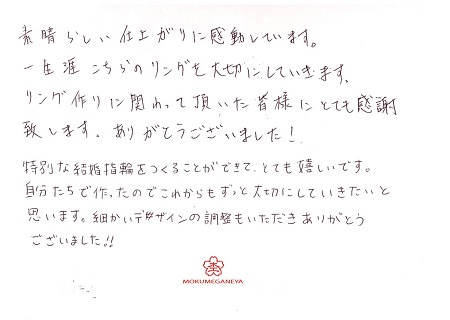 素晴らしい仕上がりに感動しています。
一生涯こちらのリングを大切にしていきます。
リング作りに関わって頂いた皆様にとても感謝
致します。ありがとうございました!
特別な結婚指輪をつくることができて、とても嬉しいです。
自分たちで作ったのでこれからもずっと大切にしていきたいと
思います。細かいデザインの調整もいただきありがとう
ございました!!
MOKUMEGANEYA